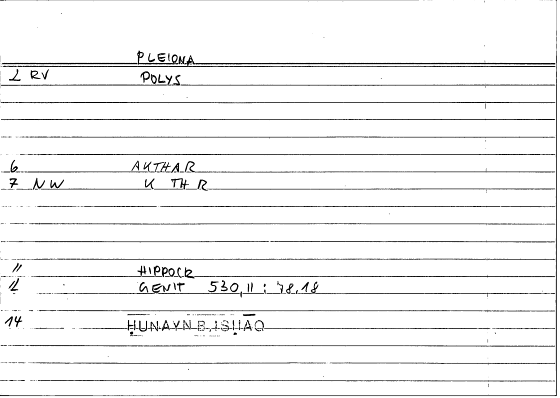 PLEIONA
2 RV POLYS
6 AKTHAR
7 NW K TH R
11 HIPPOCR
12 GENIT 530,11 : 48.18
14 ḤUNAYN B. ISḤĀQ